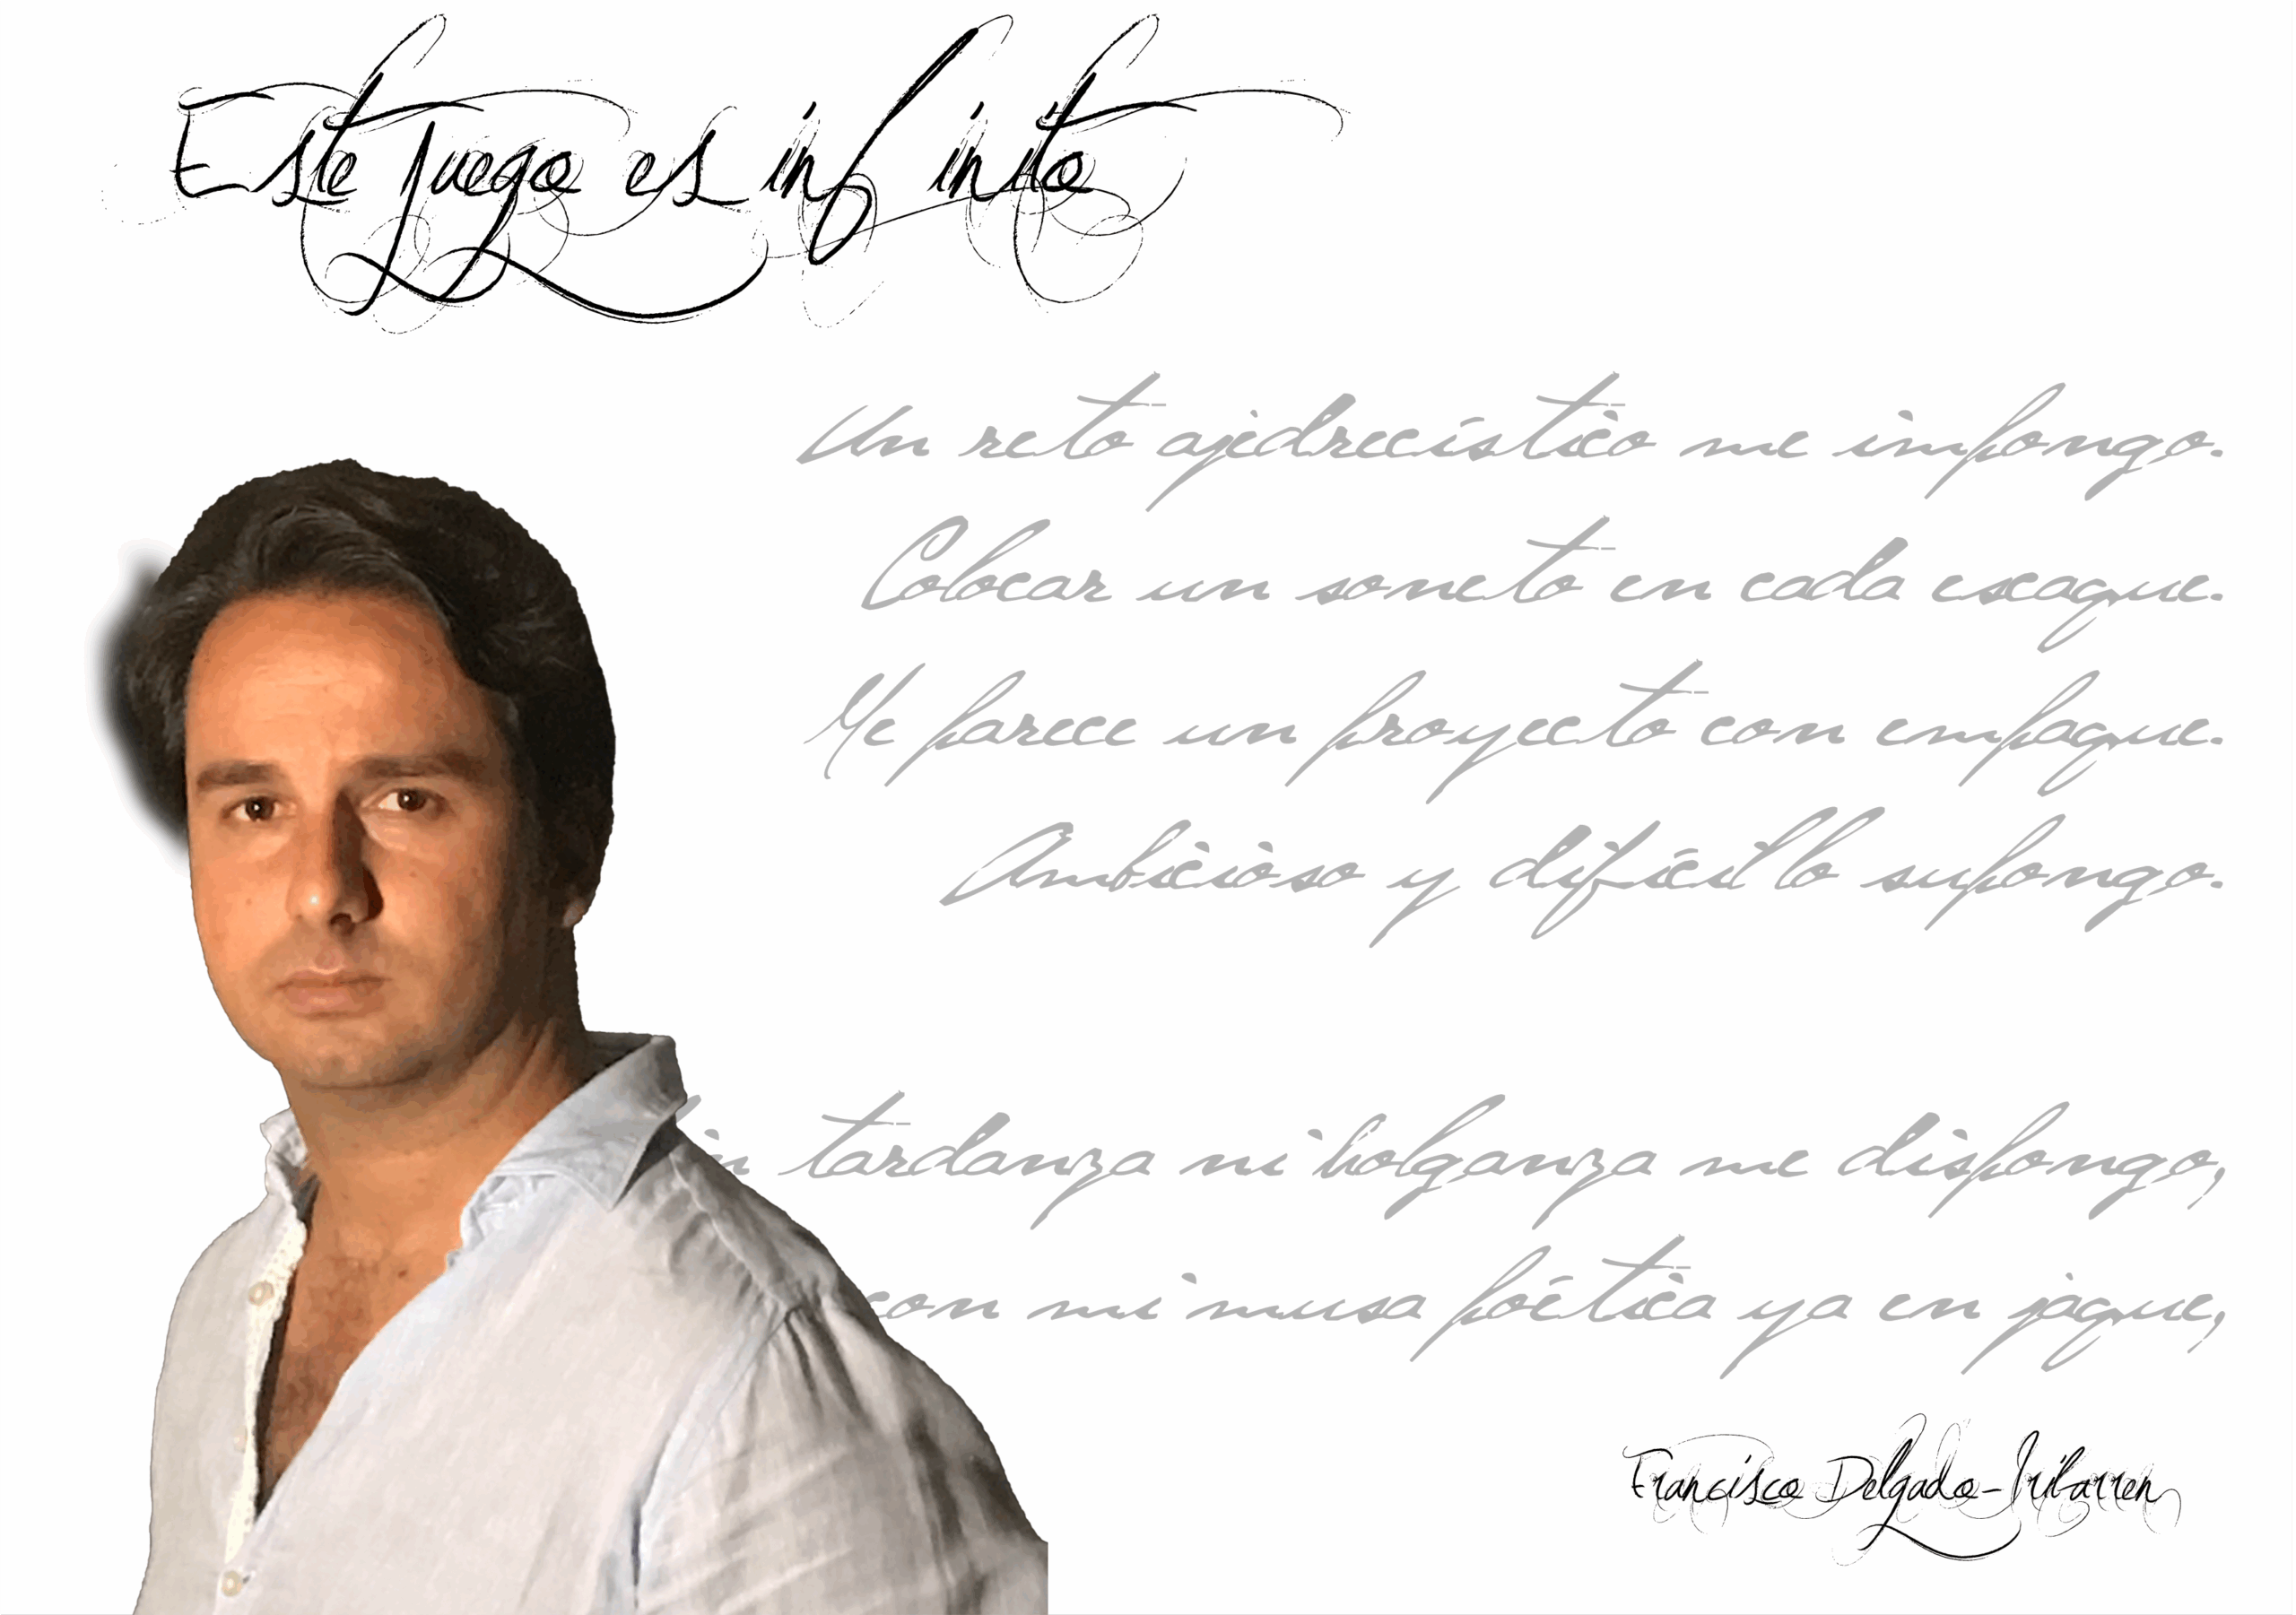 Este juego es infinito
Un reto ajedrecístico me impongo.
Colocar un soneto en cada escaque.
Me parece un proyecto con empaque.
Ambicioso y difícil lo supongo.
in tardanza ni holganza me dispongo,
con mi musa poética ya en jaque,
Francisco Delgado-Iribarren